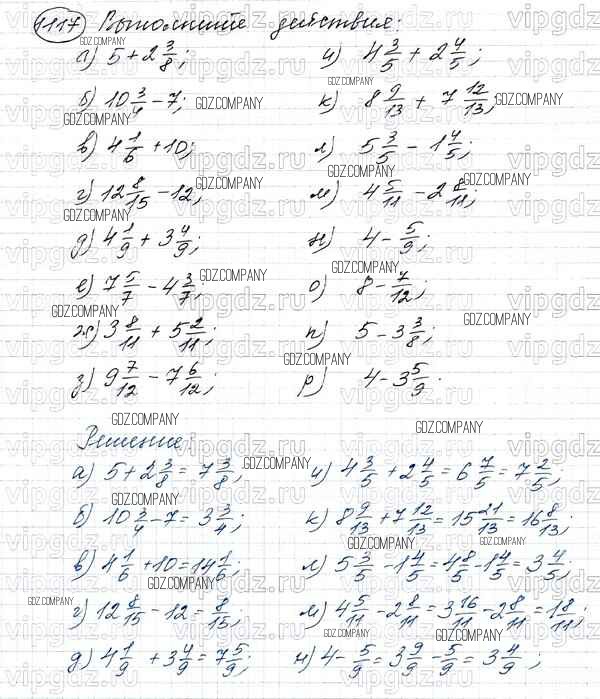 1117 Выполните действия:
а) 5 + 2 3/8;
б) 10 3/4 − 7;
в) 4 1/6 + 10;
г) 12 8/15 − 12;
д) 4 1/9 + 3 4/9;
е) 7 5/7 − 4 3/7;
ж) 3 8/11 + 5 2/11;
з) 9 7/12 − 7 6/12;
и) 4 3/5 + 2 4/5;
к) 8 9/13 + 7 12/13;
л) 5 3/5 − 1 4/5;
м) 4 5/11 − 2 8/11;
н) 4 − 5/9;
о) 8 − 7/12;
п) 5 − 3 3/8;
р) 4 − 3 5/9.
Решение:
а) 5 + 2 3/8 = 7 3/8;
б) 10 3/4 − 7 = 3 3/4;
в) 4 1/6 + 10 = 14 1/6;
г) 12 8/15 − 12 = 8/15;
д) 4 1/9 + 3 4/9 = 7 5/9;
и) 4 3/5 + 2 4/5 = 6 7/5 = 7 2/5;
к) 8 9/13 + 7 12/13 = 15 21/13 = 16 8/13;
л) 5 3/5 − 1 4/5 = 4 8/5 − 1 4/5 = 3 4/5;
м) 4 5/11 − 2 8/11 = 3 16/11 − 2 8/11 = 1 8/11;
н) 4 − 5/9 = 3 9/9 − 5/9 = 3 4/9;
GDZ.COMPANY
vipgdz.ru